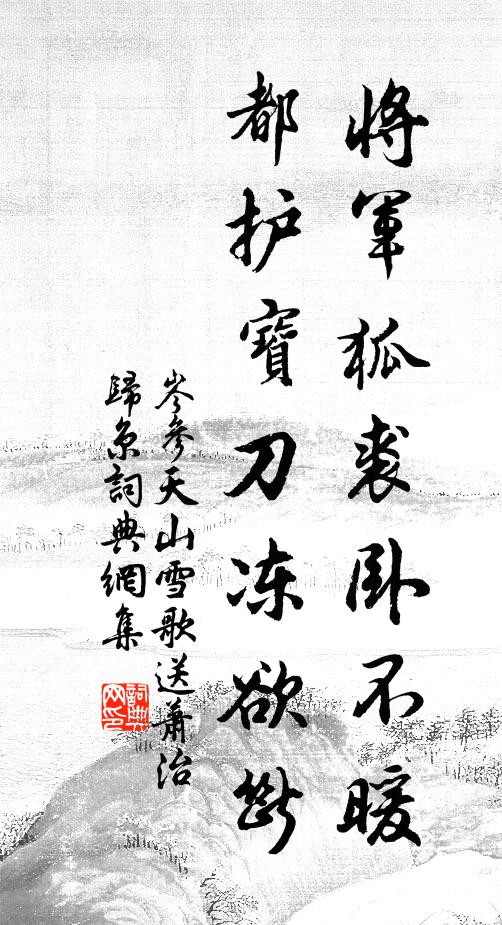 將軍狐裘卧不暖
都护寶刀冻欲斷
岑參天山雪歌送蕭治
歸京詞典網集
詞典
网印